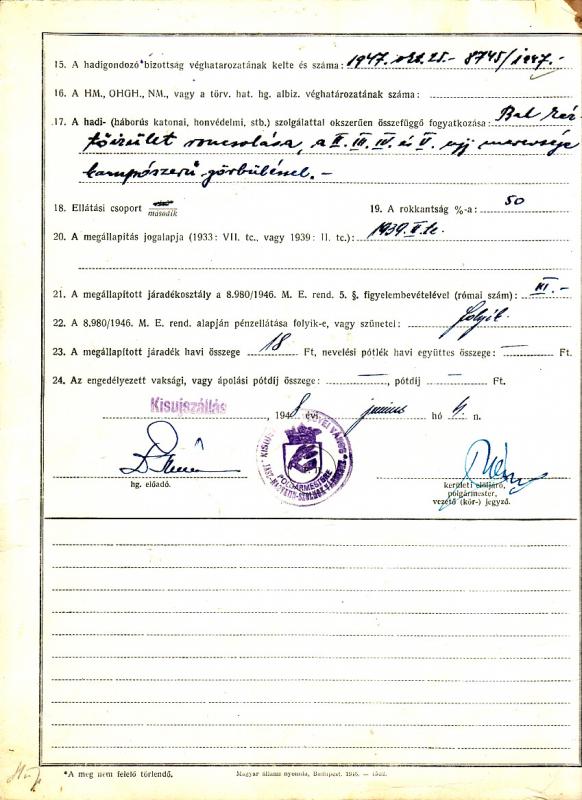 15. A hadigondozó*bizottság véghatározatának kelte és száma: 1947. okt. 25. - 8745/1947.-
16. A HM., OHGH., NM., vagy a törv. hat. hg. albiz. véghatározatának száma:
17. A hadi- (háborús katonai, honvédelmi, stb.) szolgálattal okszerűen összefüggő fogyatkozása: Bal kéz-
tőízület roncsolása, a II. III. IV. és V. ujj merevsége
kampószerű görbüléssel. -
18. Ellátási csoport második
19. A rokkantság %-a: 50
20. A megállapítás jogalapja (1933: VII. tc., vagy 1939: II. tc.): 1939. II. tc.
21. A megállapított járadékosztály a 8.980/1946. M. E. rend. 5. §. figyelembevételével (római szám): III. -
22. A 8.980/1946. M. E. rend. alapján pénzellátása folyik-e, vagy szünetel: folyik.
23. A megállapított járadék havi összege 18 Ft, nevelési pótlék havi együttes összege: — Ft.
24. Az engedélyezett vaksági, vagy ápolási pótdíj összege: —, pótdíj — Ft.
Kisujszállás, 1948 évi junius hó n.
POLGÁRMESTERE
hg. előadó.
kerületi elöljáró,
polgármester,
vezető (kör-) jegyző.
*A meg nem felelő törlendő.
Magyar állami nyomda, Budapest. 1946. —